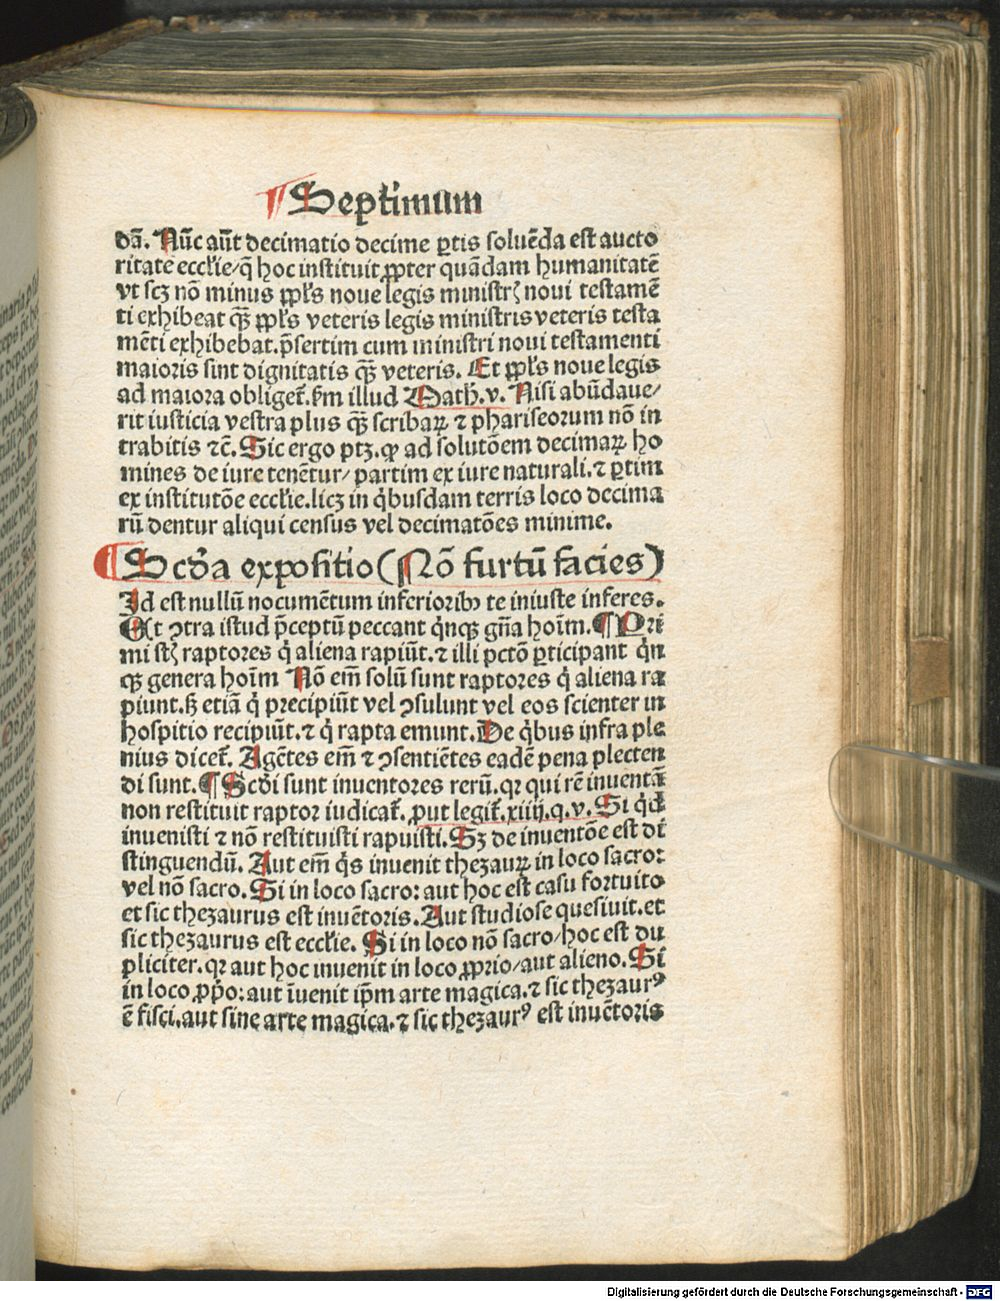 ¶ Septimum
dã. Nũc aũt decimatio decime ꝑtis soluẽda est aucto
ritate ecclie/ q̃ hoc instituit ꝓpter quãdam humanitatẽ
vt scꝫ nõ minus ppl's noue legis ministrꝭ noui testamẽ
ti exhibeat qꝫ̃ ppl's veteris legis ministris veteris testa
mẽti exhibebat. p̃sertim cum ministri noui testamenti
maioris sint dignitatis qꝫ̃ veteris. Et ppl's noue legis
ad maiora obliget̃. s̃m illud Math̃. v. Nisi abũdaue/
rit iusticia vestra plus qꝫ̃ scribaꝝ ⁊ phariseorum nõ in
trabitis ⁊c̃. Sic ergo ptꝫ. ꝙ ad solutõem decimaꝝ ho
mines de iure tenẽtur/ partim ex iure naturali. ⁊ ꝑtim
ex institutõe ecclie. licꝫ in q̇busdam terris loco decima
rũ dentur aliqui census vel decimatões minime.
¶ Scd̃a expositio (Nõ furtũ facies)
Id est nullũ nocumẽtum inferioribꝰ te iniuste inferes.
Et ꝯtra istud p̃ceptũ peccant q̇nqꝫ gñа hoĩm. ¶ Pri
mi st̃ raptores q̇ aliena rapiũt. ⁊ illi pctõ ꝑticipant q̇n
qꝫ genera hoĩm Nõ em̃ solũ sunt raptores q̇ aliena ra
piunt. sꝫ etiã q̇ precipiũt vel ꝯsulunt vel eos scienter in
hospitio recipiũt. ⁊ q̇ rapta emunt. De q̇bus infra ple
nius dicet̃. Agẽtes em̃ ⁊ ꝯsentiẽtes eadẽ pena plecten
di sunt. ¶ Scd̃i sunt inuentores rerũ. qꝛ qui rẽ inuentã
non restituit raptor iudicat̃. ꝓut legit̃. xiiij. q. v. Si qd̃
inuenisti ⁊ nõ restituisti rapuisti. Sꝫ de inuentõe est di
stinguendũ. Aut em̃ q̇s inuenit thezauꝝ in loco sacro:
vel nõ sacro. Si in loco sacro: aut hoc est casu fortuito
et sic thezaurus est inuẽtoris. Aut studiose quesiuit. et
sic thezaurus est ecclie. Si in loco nõ sacro/ hoc est du
pliciter. qꝛ aut hoc inuenit in loco ꝓprio/ aut alieno. Si
in loco ꝓp̃o: aut ĩuenit ip̃m arte magica. ⁊ sic thezaurꝰ
ẽ fisci. aut sine arte magica. ⁊ sic thezaurꝰ est inuẽtoris
Digitalisierung gefördert durch die Deutsche Forschungsgemeinschaft - DFG